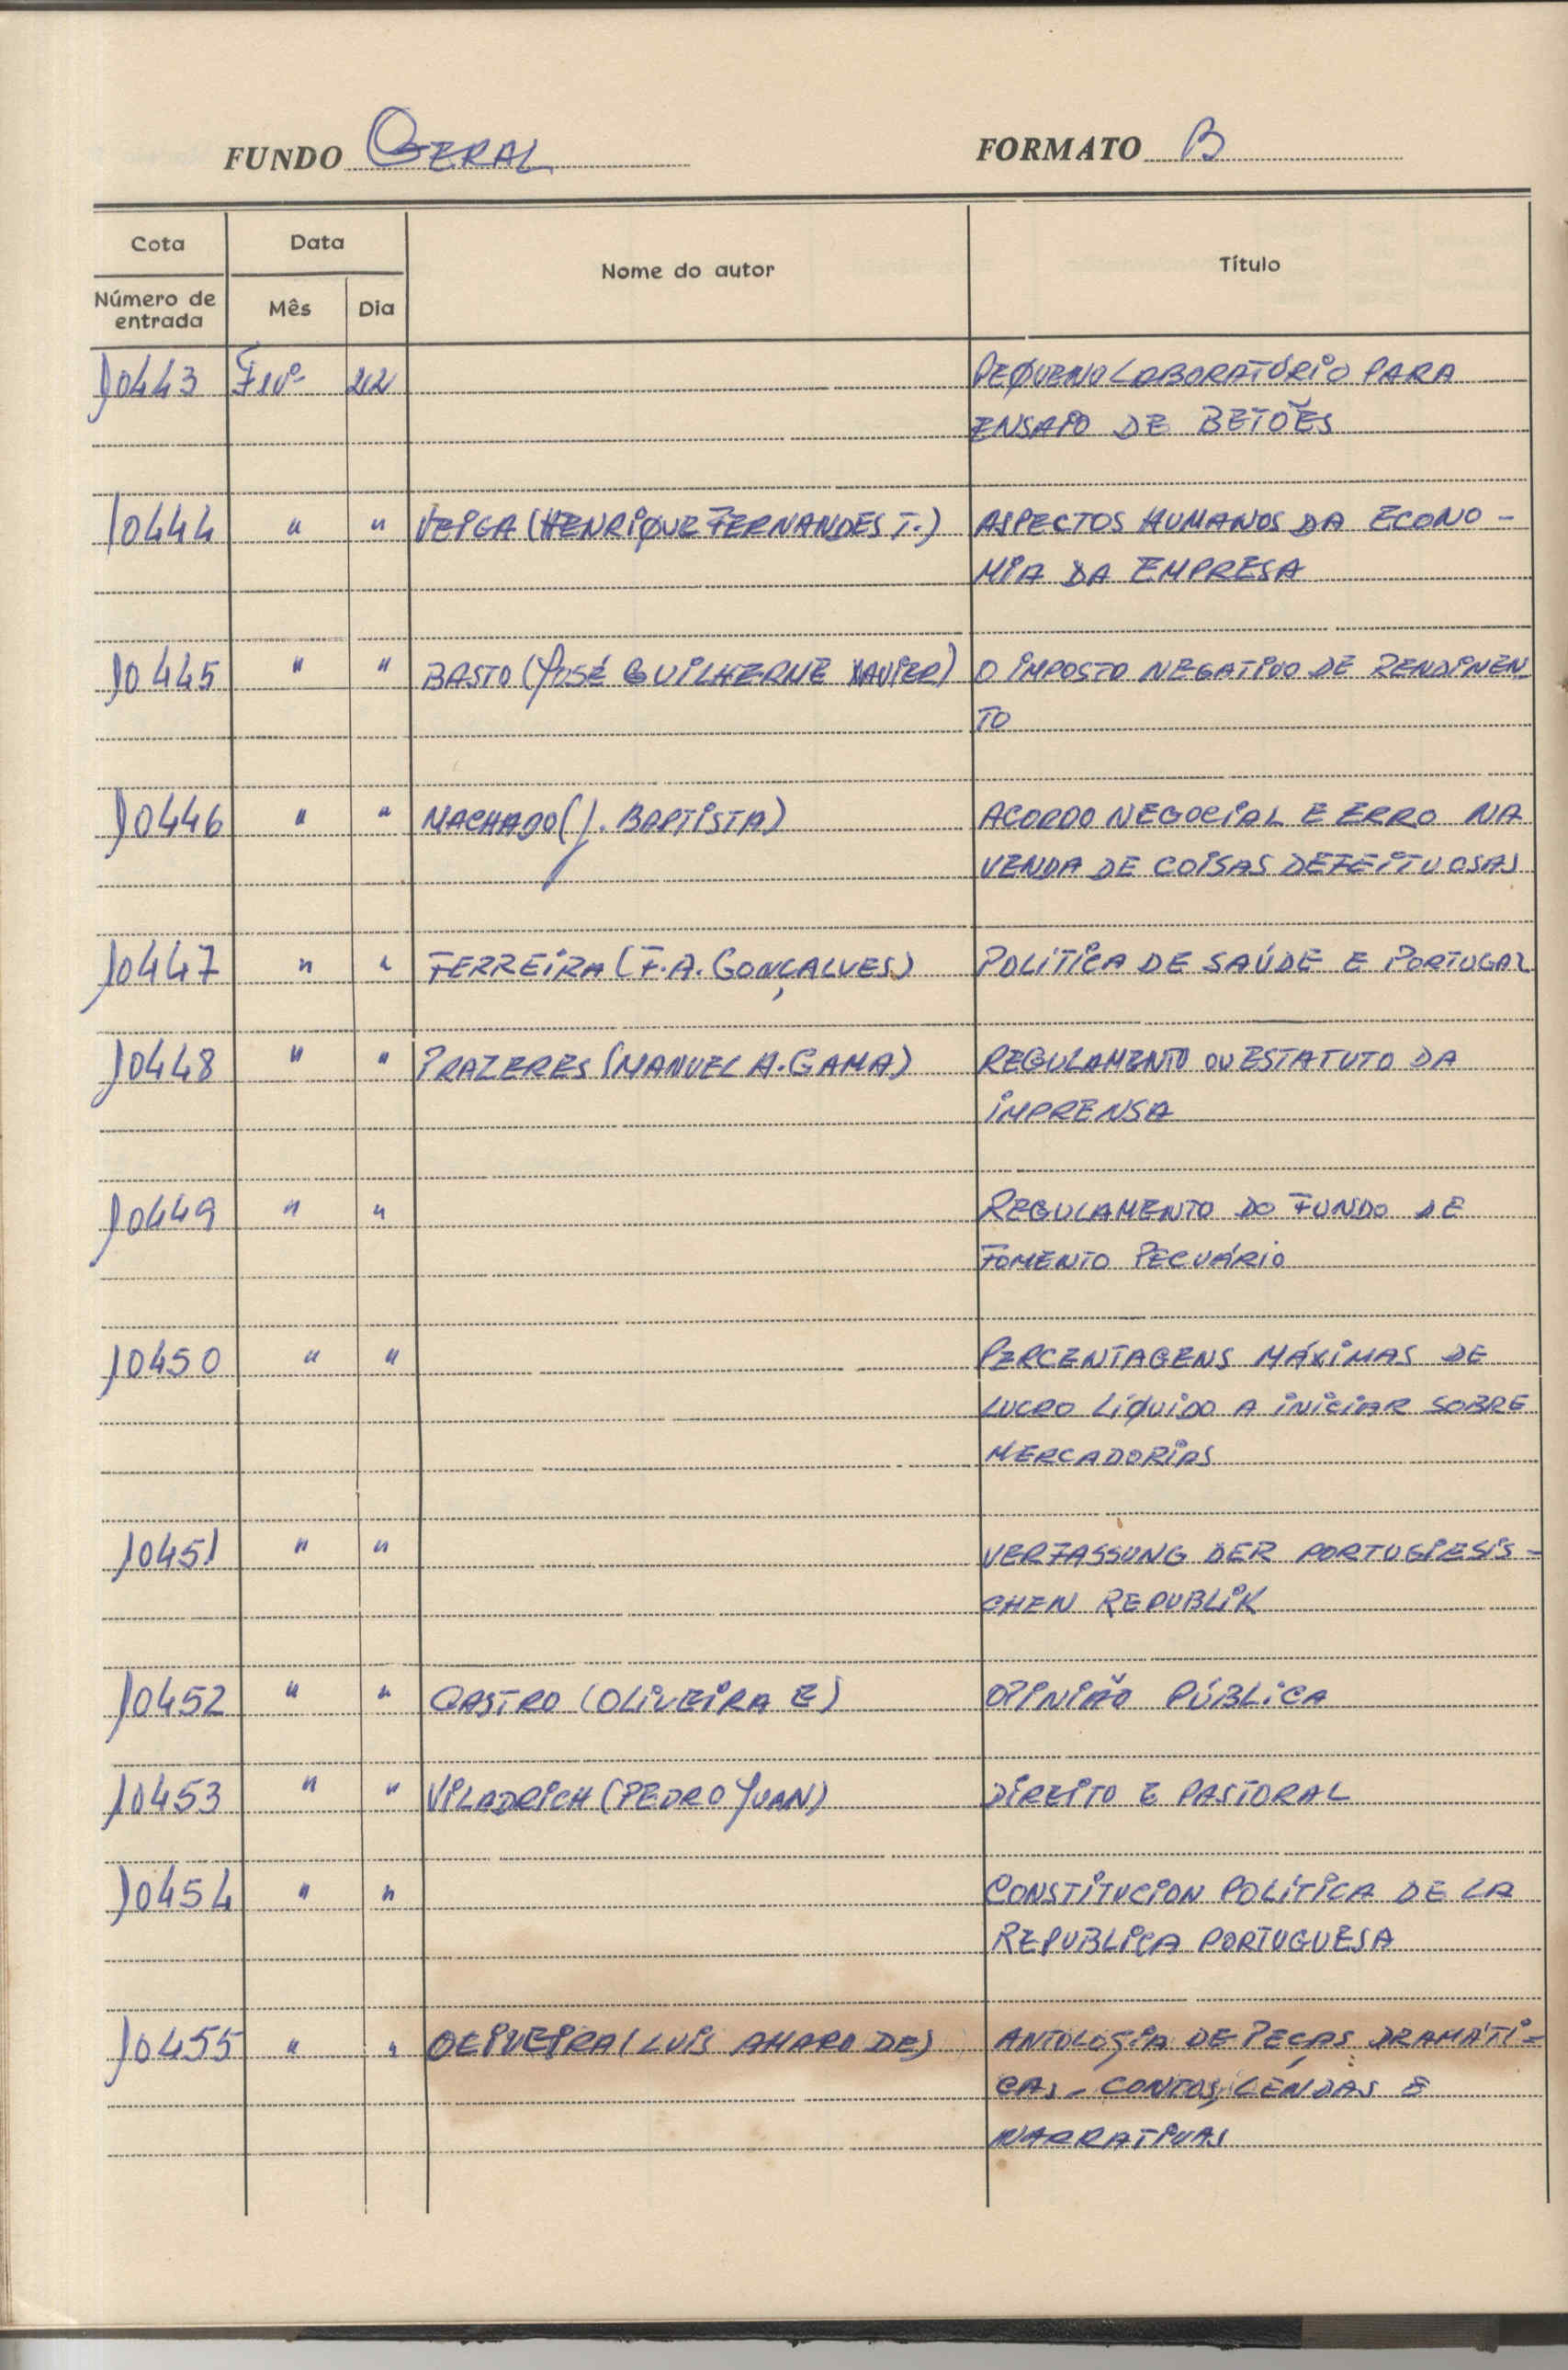 FUNDO GERAL FORMATO B
Cota Data Nome do autor Título
Número de entrada Mês Dia
10443 Fevº 22 PEQUENO LABORATÓRIO PARA
ENSAIO DE BETÕES
10444 " " VEIGA (HENRIQUE FERNANDES T.) ASPECTOS HUMANOS DA ECONO-
MIA DA EMPRESA
10445 " " BASTO (JOSÉ GUILHERME XAVIER) O IMPOSTO NEGATIVO DE RENDIMEN
TO
10446 " " MACHADO (J. BAPTISTA) ACORDO NEGOCIAL E ERRO NA
VENDA DE COISAS DEFEITUOSAS
10447 " " FERREIRA (F.A. GONÇALVES) POLÍTICA DE SAÚDE E PORTUGAL
10448 " " PRAZERES (MANUEL A. GAMA) REGULAMENTO OU ESTATUTO DA
IMPRENSA
10449 " " REGULAMENTO DO FUNDO DE
FOMENTO PECUÁRIO
10450 " " PERCENTAGENS MÁXIMAS DE
LUCRO LÍQUIDO A INICIAR SOBRE
MERCADORIAS
10451 " " VERFASSUNG DER PORTUGIESIS-
CHEN REPUBLIK
10452 " " CASTRO (OLIVEIRA E) OPINIÃO PÚBLICA
10453 " " VILADRICH (PEDRO JUAN) DIREITO E PASTORAL
10454 " " CONSTITUCION POLÍTICA DE LA
REPUBLICA PORTUGUESA
10455 " " OLIVEIRA (LUIS AMARO DE) ANTOLOGIA DE PEÇAS DRAMÁTI-
CAS - CONTOS, LENDAS E
NARRATIVAS